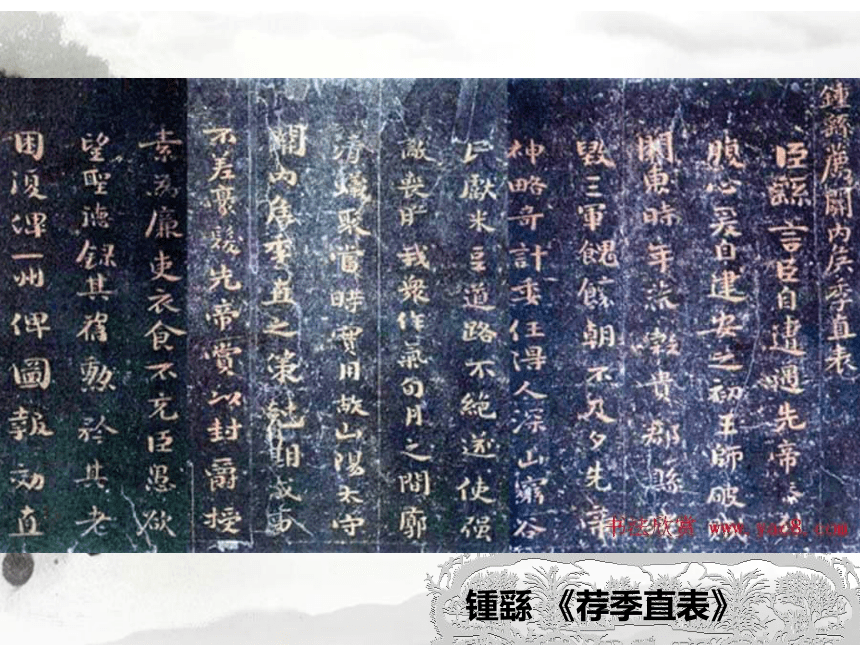 鍾繇薦關内侯季直表
臣繇言臣自遭遇先帝忝
腹心爰自建安之初王師破
關東時年荒穀貴郡縣
毀三軍餽饟朝不及夕先帝
神略奇計委任得人深山窮谷
民獻米豆道路不絶遂使强
敵喪膽我衆作氣旬月之間廓
清蟻聚當時實用故山陽太守
關内侯季直之策尅期成事
不差豪髮先帝賞以封爵授
素為廉吏衣食不充臣愚欲
望聖德録其舊勲矜其老
困復俾一州俾圖報効直
书法欣赏 www.yac8.com
锺繇 《荐季直表》